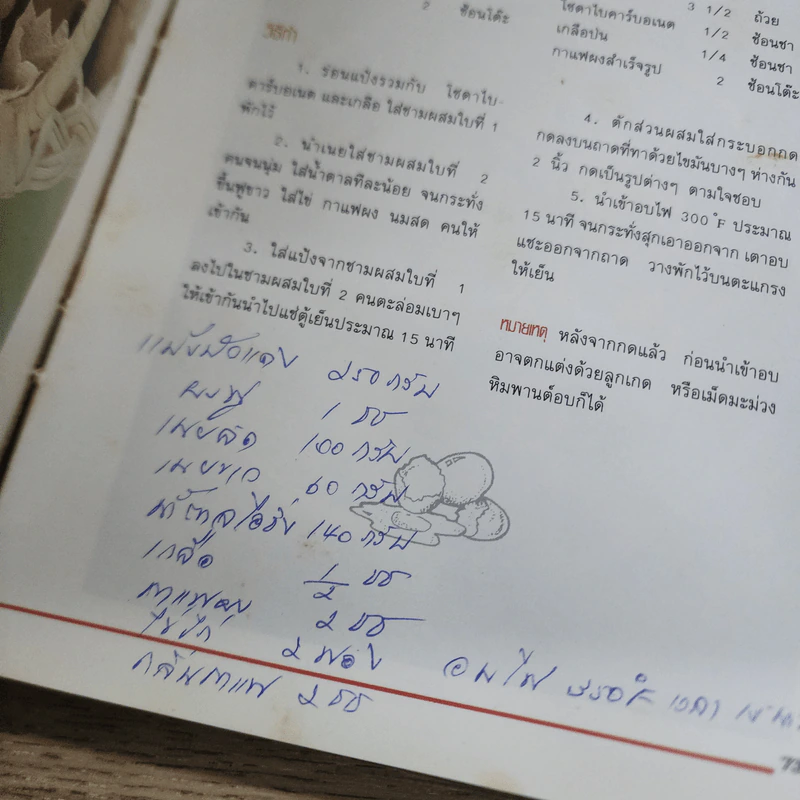 2 ช้อนโต๊ะ
วิธีทำ
1. ร่อนแป้งรวมกับ โซดาไบ-
คาร์บอเนต และเกลือ ใส่ชามผสมใบที่ 1
พักไว้
2. นำเนยใส่ชามผสมใบที่ 2
คนจนนุ่ม ใส่น้ำตาลทีละน้อย จนกระทั่ง
ขึ้นฟูขาว ใส่ไข่ กาแฟผง นมสด คนให้
เข้ากัน
3. ใส่แป้งจากชามผสมใบที่ 1
ลงไปในชามผสมใบที่ 2 คนตะล่อมเบาๆ
ให้เข้ากันนำไปแช่ตู้เย็นประมาณ 15 นาที
3 1/2 ถ้วย
โซดาไบคาร์บอเนต 1/2 ช้อนชา
เกลือป่น 1/4 ช้อนชา
กาแฟผงสำเร็จรูป 2 ช้อนโต๊ะ
4. ตักส่วนผสมใส่กระบอกกด
กดลงบนถาดที่ทาด้วยไขมันบางๆ ห่างกัน
2 นิ้ว กดเป็นรูปต่างๆ ตามใจชอบ
5. นำเข้าอบไฟ 300°F ประมาณ
15 นาที จนกระทั่งสุกเอาออกจาก เตาอบ
แซะออกจากถาด วางพักไว้บนตะแกรง
ให้เย็น
หมายเหตุ หลังจากกดแล้ว ก่อนนำเข้าอบ
อาจตกแต่งด้วยลูกเกด หรือเม็ดมะม่วง
หิมพานต์อบก็ได้
แป้งพัดแดง ๒๕๐ กรัม
ผงฟู 1 ชช
เนยสด 100 กรัม
เนยขาว 60 กรัม
น้ำตาลไอซิ่ง 140 กรัม
เกลือ 1/2 ชช
กาแฟผง 2 ชช
ไข่ไก่ 2 ฟอง
กลิ่นกาแฟ 2 ชช
อบไฟ ๓๕๐°F เวลา